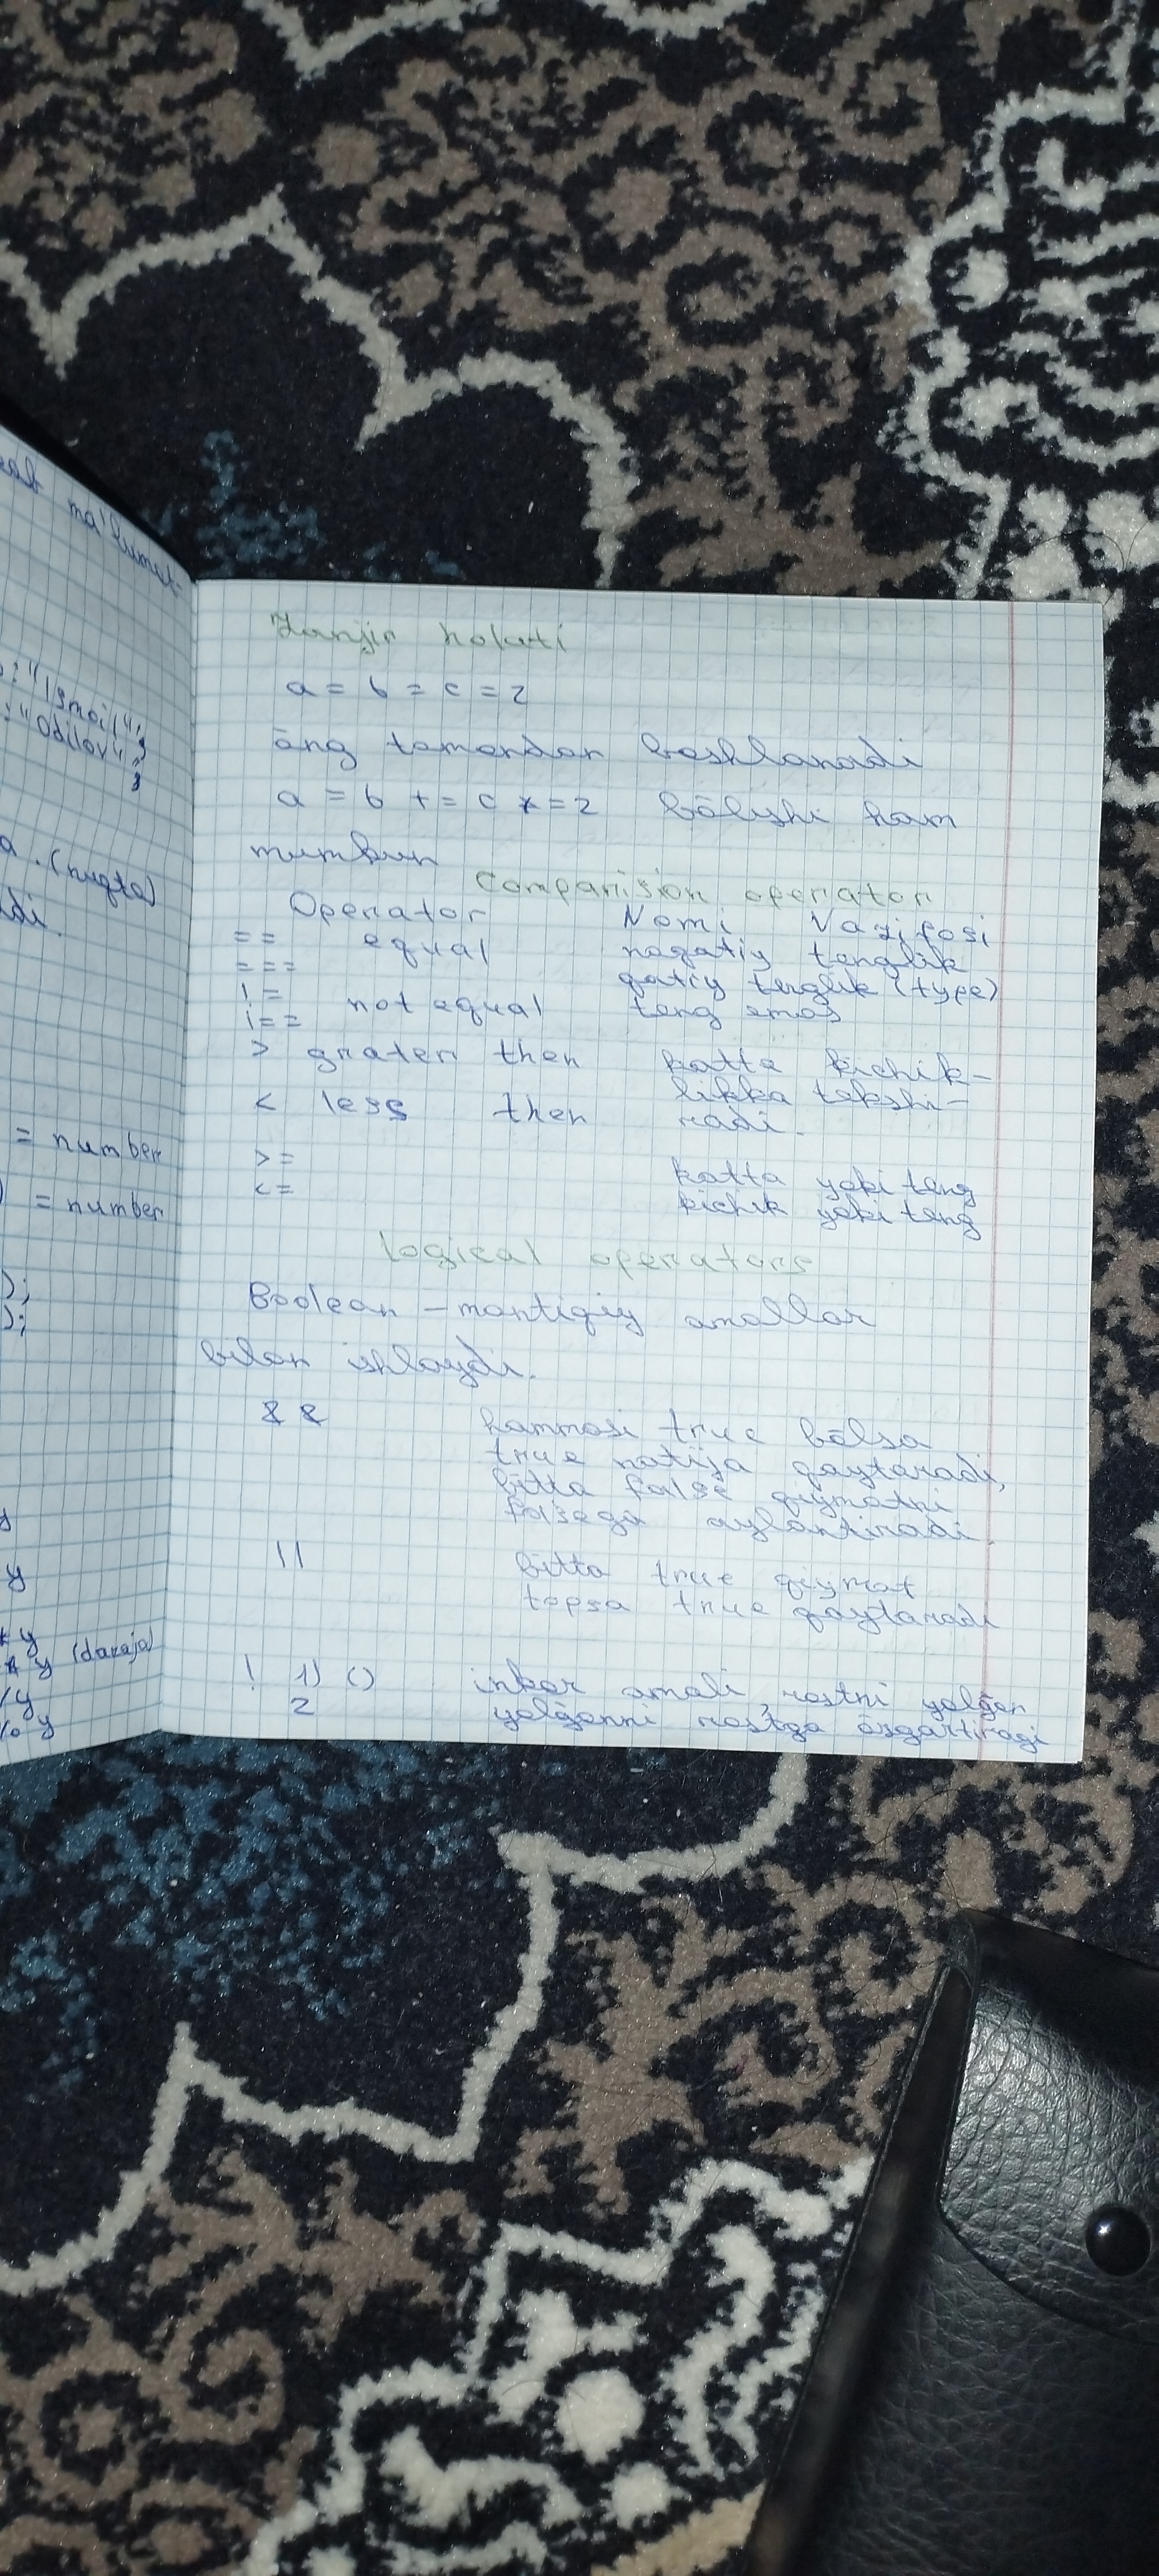 ma'lumot-
:"Ismoil";
:"Odilov";
(nuqta)
= number
= number
);
);
y
y
* y (daraja)
* y
/ y
% y
Zanjir holati
a = b = c = 2
ōng tomondan boshlanadi
a = b += c *= 2 bōlishi ham
mumkun
Comparision operator
Operator Nomi Vazifasi
== equal nogatiy tenglik
=== qatiy tenglik (type)
!= not equal teng emas
!==
> grater then katta kichik-
likka tekshi-
< less then radi.
>= katta yoki teng
<= kichik yoki teng
logical operators
Boolean - mantiqiy amallar
bilan ishlaydi.
&& hammasi true bōlsa
true natija qaytaradi,
bitta false qiymatni
falsega aylantiradi.
|| bitta true qiymat
topsa true qaytaradi
! 1) () inkor amali, rostni yolgōn
2 yolgōnni rostga ōzgartiradi